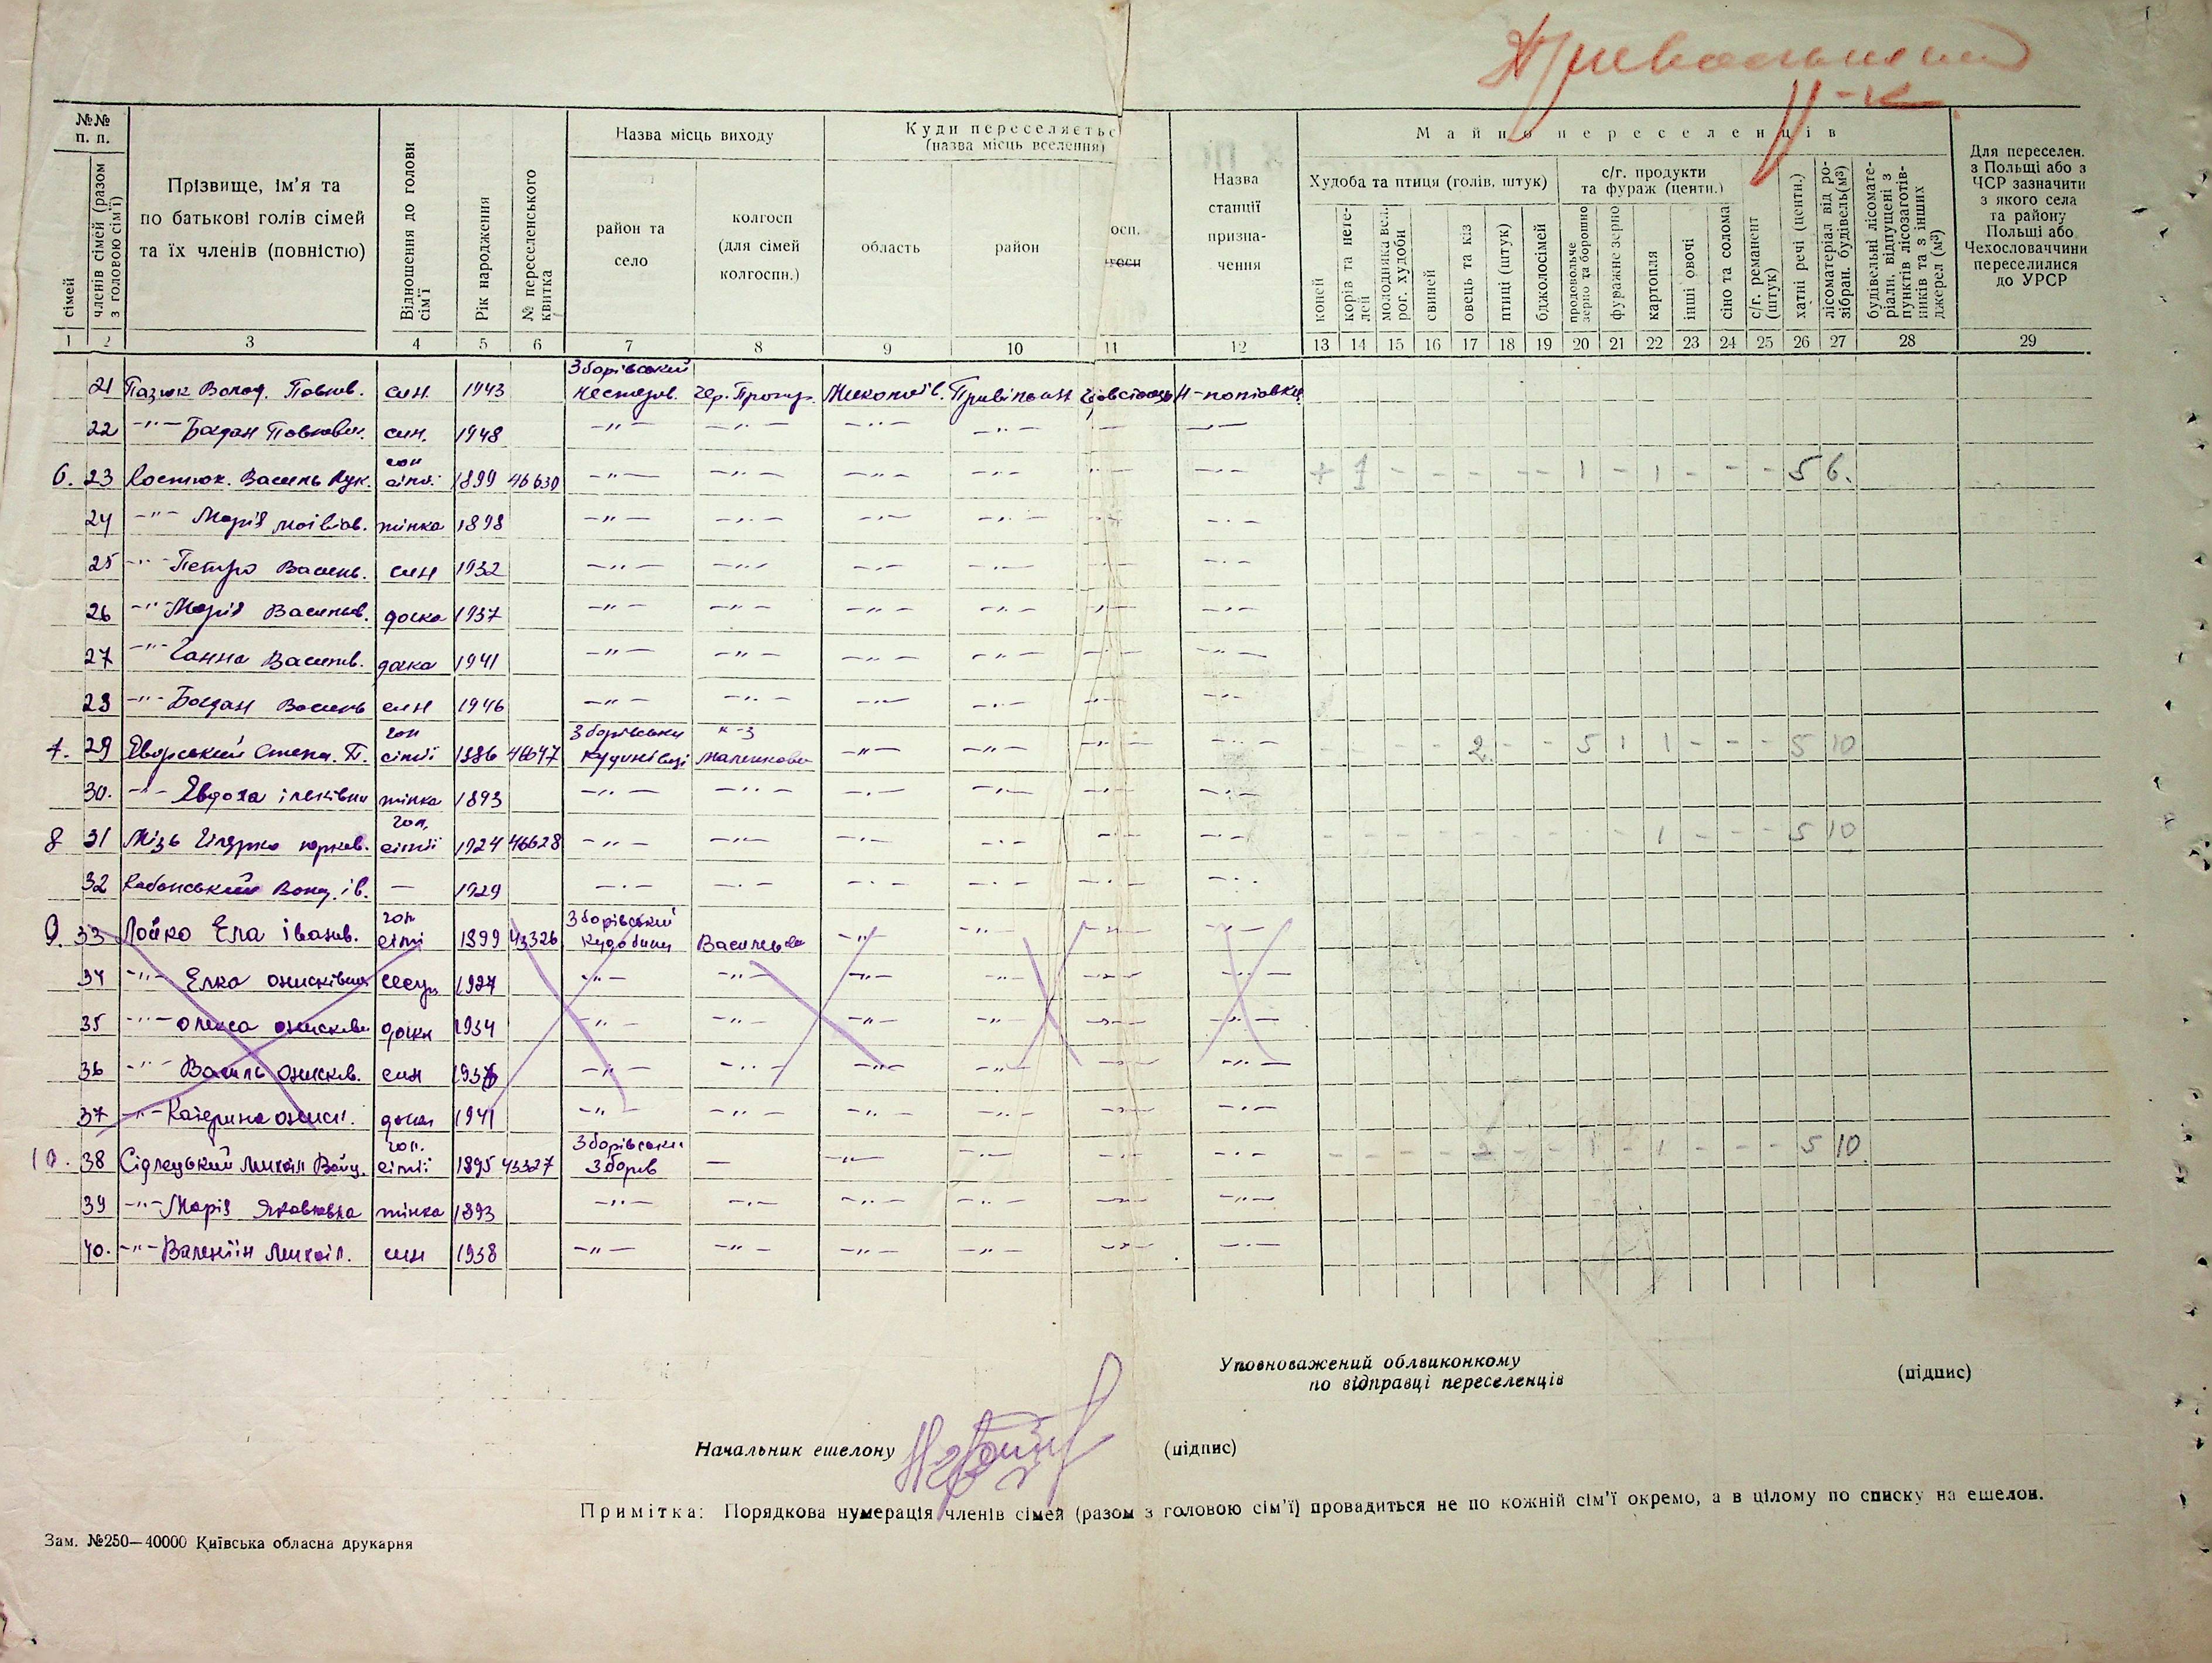 №№ п. п.
сімей
членів сімей (разом з головою сім'ї)
Прізвище, ім'я та
по батькові голів сімей
та їх членів (повністю)
Відношення до голови сім'ї
Рік народження
№ переселенського квитка
Назва місць виходу
район та
село
колгосп
(для сімей
колгоспн.)
Куди переселяєтьс
(назва місць вселення)
область
район
осп.
Назва
станції
призна-
чення
Майно переселенців
Худоба та птиця (голів, штук)
с/г. продукти
та фураж (центн.)
коней
корів та нете-
лей
молодняка вел.
рог. худоби
свиней
овець та кіз
птиці (штук)
бджолосімей
продовольче
зерно та борошно
фуражне зерно
картопля
інші овочі
сіно та солома
с/г. реманент
(штук)
хатні речі (центн.)
лісоматеріал від ро-
зібран. будівель (м³)
будівельні лісомате-
ріали, відпущені з
пунктів лісозаготів-
ників та з інших
джерел (м³)
Для переселен.
з Польщі або з
ЧСР зазначити
з якого села
та району
Польщі або
Чехословаччини
переселилися
до УРСР
1 2 3 4 5 6 7 8 9 10 11 12 13 14 15 16 17 18 19 20 21 22 23 24 25 26 27 28 29
Зборівський
21 Пазюк Волод. Павлов. син 1943 Нестеров. Миколаїв.
22 -"- Богдан Павлович. син. 1948 -"- -"- -"- -"- -"-
гол
6. 23 Костюк. Василь Лук. сімї. 1899 46630 -"- -"- -"- -"- -"- -"- + 1 - - - - - 1 - 1 - - - 5 6.
24 -"- Марія жінка 1898 -"- -"- -"- -"- -"- -"-
25 -"- Петро Василь. син 1932 -"- -"- -"- -"- -"- -"-
26 -"- Марія Васильов. дочка 1937 -"- -"- -"- -"- -"- -"-
27 -"- Ганна Василів. дочка 1941 -"- -"- -"- -"- -"- -"-
28 -"- Богдан Василь син 1946 -"- -"- -"- -"- -"-
гол Зборівськи к-з
7. 29 Яворський Степ. П. сімії 1886 46647 Кудинівці Маленкова -"- -"- -"- - - - - 2 - - 5 1 1 - - - 5 10
30. -"- Явдоха жінка 1893 -"- -"- -"- -"- -"- -"-
гол.
8 31 Мізь сімії 1924 46628 -"- -"- -"- -"- -"- -"- 1 - - - 5 10
32 - 1929 -"- -"- -"- -"- -"- -"-
гол Зборівський
9. 33 Лойко Ела Іванів. сімї 1899 43326 -"- -"- -"- -"-
34 -"- Елка Онисківна 1927 -"- -"- -"- -"- -"- -"-
35 -"- дочка 1934 -"- -"- -"- -"- -"- -"-
36 -"- Василь Онисков. син -"- -"- -"- -"- -"- -"-
37 -"- Катерина Онись. дочка 1941 -"- -"- -"- -"- -"- -"-
гол. Зборівськи
10. 38 Сідлецький Михайл Войц. сімії 1895 43327 Зборів - -"- -"- -"- -"- - - - - 2 - - 1 - 1 - - - 5 10.
39 -"- Марія Яковлівна жінка 1893 -"- -"- -"- -"- -"- -"-
40. -"- Валентін Михайл. син 1938 -"- -"- -"- -"- -"- -"-
Уповноважений облвиконкому
по відправці переселенців
(підпис)
Начальник ешелону
(підпис)
Примітка: Порядкова нумерація членів сімей (разом з головою сім'ї) провадиться не по кожній сім'ї окремо, а в цілому по списку на ешелон.
Зам. №250—40000 Київська обласна друкарня